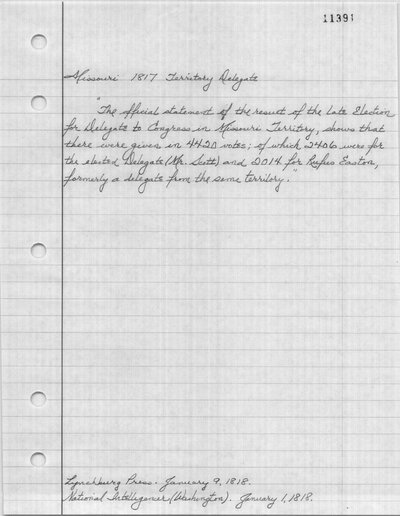 11391
Missouri 1817 Territory Delegate
"The official statement of the result of the late Election
for Delegate to Congress in Missouri Territory, shows that
there were given in 4420 votes; of which 2406 were for
the elected Delegate (Mr. Scott) and 2014 for Rufus Easton,
formerly a delegate from the same territory."
Lynchburg Press. January 9, 1818.
National Intelligencer (Washington). January 1, 1818.